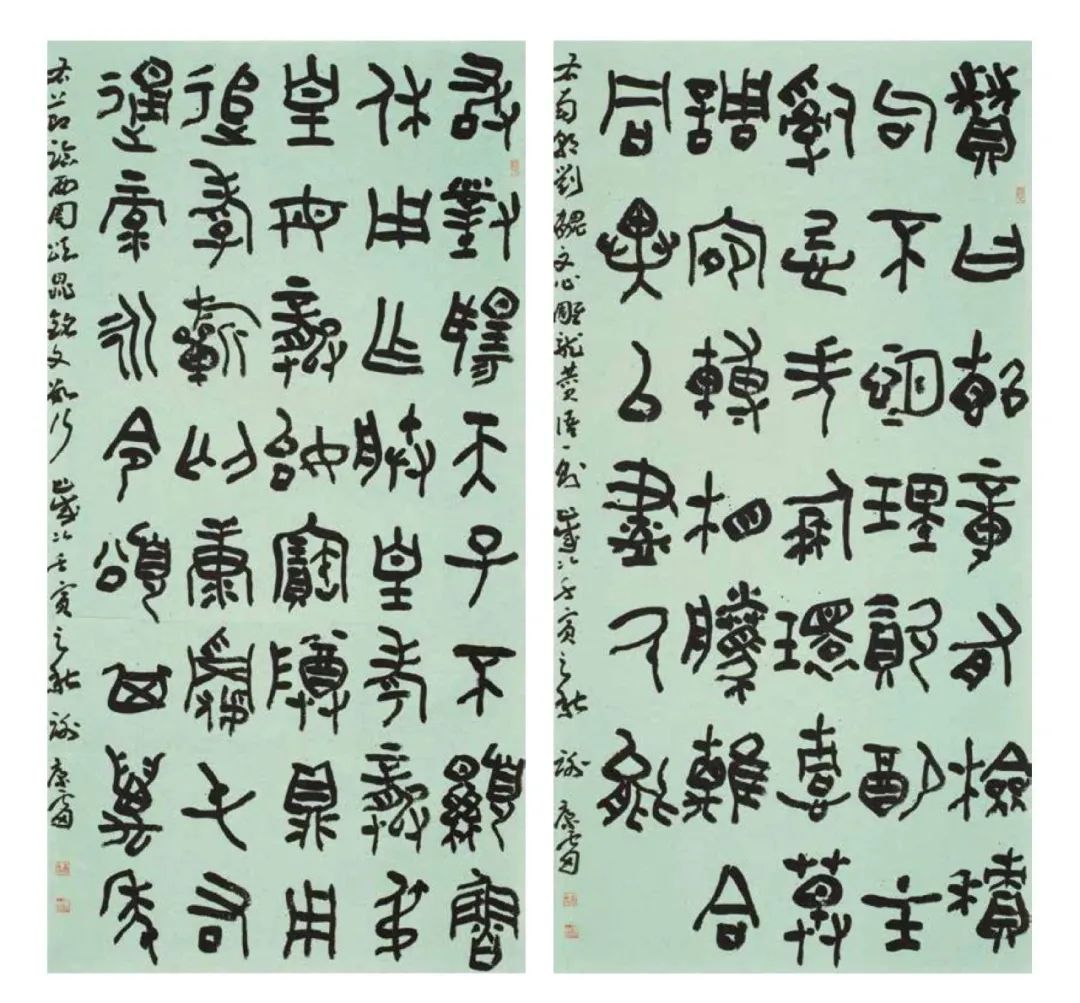 贊曰斷章有檢積
句不恆理資配主
辭忌失朋環情草
調宛轉相騰離合
同異以盡厥能
右南朝劉勰文心雕龍贊語一則 歲次壬寅之秋 謝
敢對揚天子不顯魯
休用乍朕皇考龔叔
皇母龔姒寶尊鼎用
追孝祈匄康屯右
通彔永令頌其萬年
右節臨西周頌鼎銘文數行 歲次壬寅之秋 謝